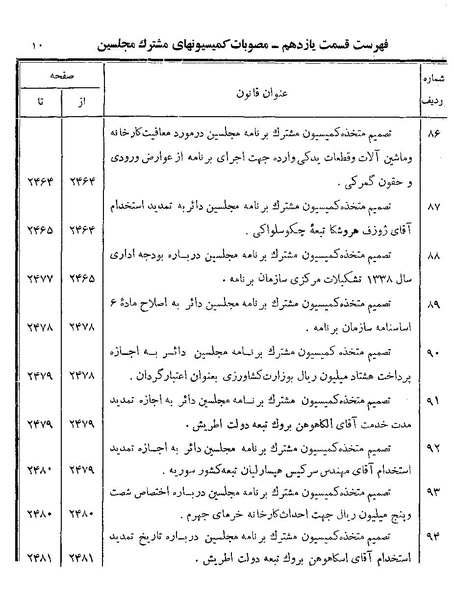 فهرست قسمت یازدهم ــ مصوبات کمیسیونهای مشترك مجلسین ۱۰
شماره ردیف عنوان قانون صفحه
از تا
۸۶ تصمیم متخذه کمیسیون مشترك برنامه مجلسین در مورد معافیت کارخانه
وماشین آلات وقطعات یدکی وارده جهت اجرای برنامه از عوارض ورودی
و حقوق گمرکی . ۲۴۶۴ ۲۴۶۴
۸۷ تصمیم متخذه کمیسیون مشترك برنامه مجلسین دائر به تمدید استخدام
آقای ژوزف هروشکا تبعۀ چکوسلواکی . ۲۴۶۴ ۲۴۶۵
۸۸ تصمیم متخذه کمیسیون مشترك برنامه مجلسین درباره بودجه اداری
سال ۱۳۳۸ تشکیلات مرکزی سازمان برنامه . ۲۴۶۵ ۲۴۷۷
۸۹ تصمیم متخذه کمیسیون مشترك برنامه مجلسین دائر به اصلاح مادۀ ۶
اساسنامه سازمان برنامه . ۲۴۷۸ ۲۴۷۸
۹۰ تصمیم متخذه کمیسیون مشترك برنامه مجلسین دائر به اجازه
پرداخت هشتاد میلیون ریال بوزارت کشاورزی بعنوان اعتبار گردان . ۲۴۷۸ ۲۴۷۹
۹۱ تصمیم متخذه کمیسیون مشترك برنامه مجلسین دائر به اجازه تمدید
مدت خدمت آقای الکاهوهن بروك تبعه دولت اطریش . ۲۴۷۹ ۲۴۷۹
۹۲ تصمیم متخذه کمیسیون مشترك برنامه مجلسین دائر به اجازه تمدید
استخدام آقای مهندس سرکیس هیسارلیان تبعه کشور سوریه . ۲۴۷۹ ۲۴۸۰
۹۳ تصمیم متخذه کمیسیون مشترك برنامه مجلسین درباره اختصاص شصت
وپنج میلیون ریال جهت احداث کارخانه خرمای جهرم . ۲۴۸۰ ۲۴۸۰
۹۴ تصمیم متخذه کمیسیون مشترك برنامه مجلسین درباره تاریخ تمدید
استخدام آقای اسکاهوهن بروك تبعه دولت اطریش . ۲۴۸۱ ۲۴۸۱